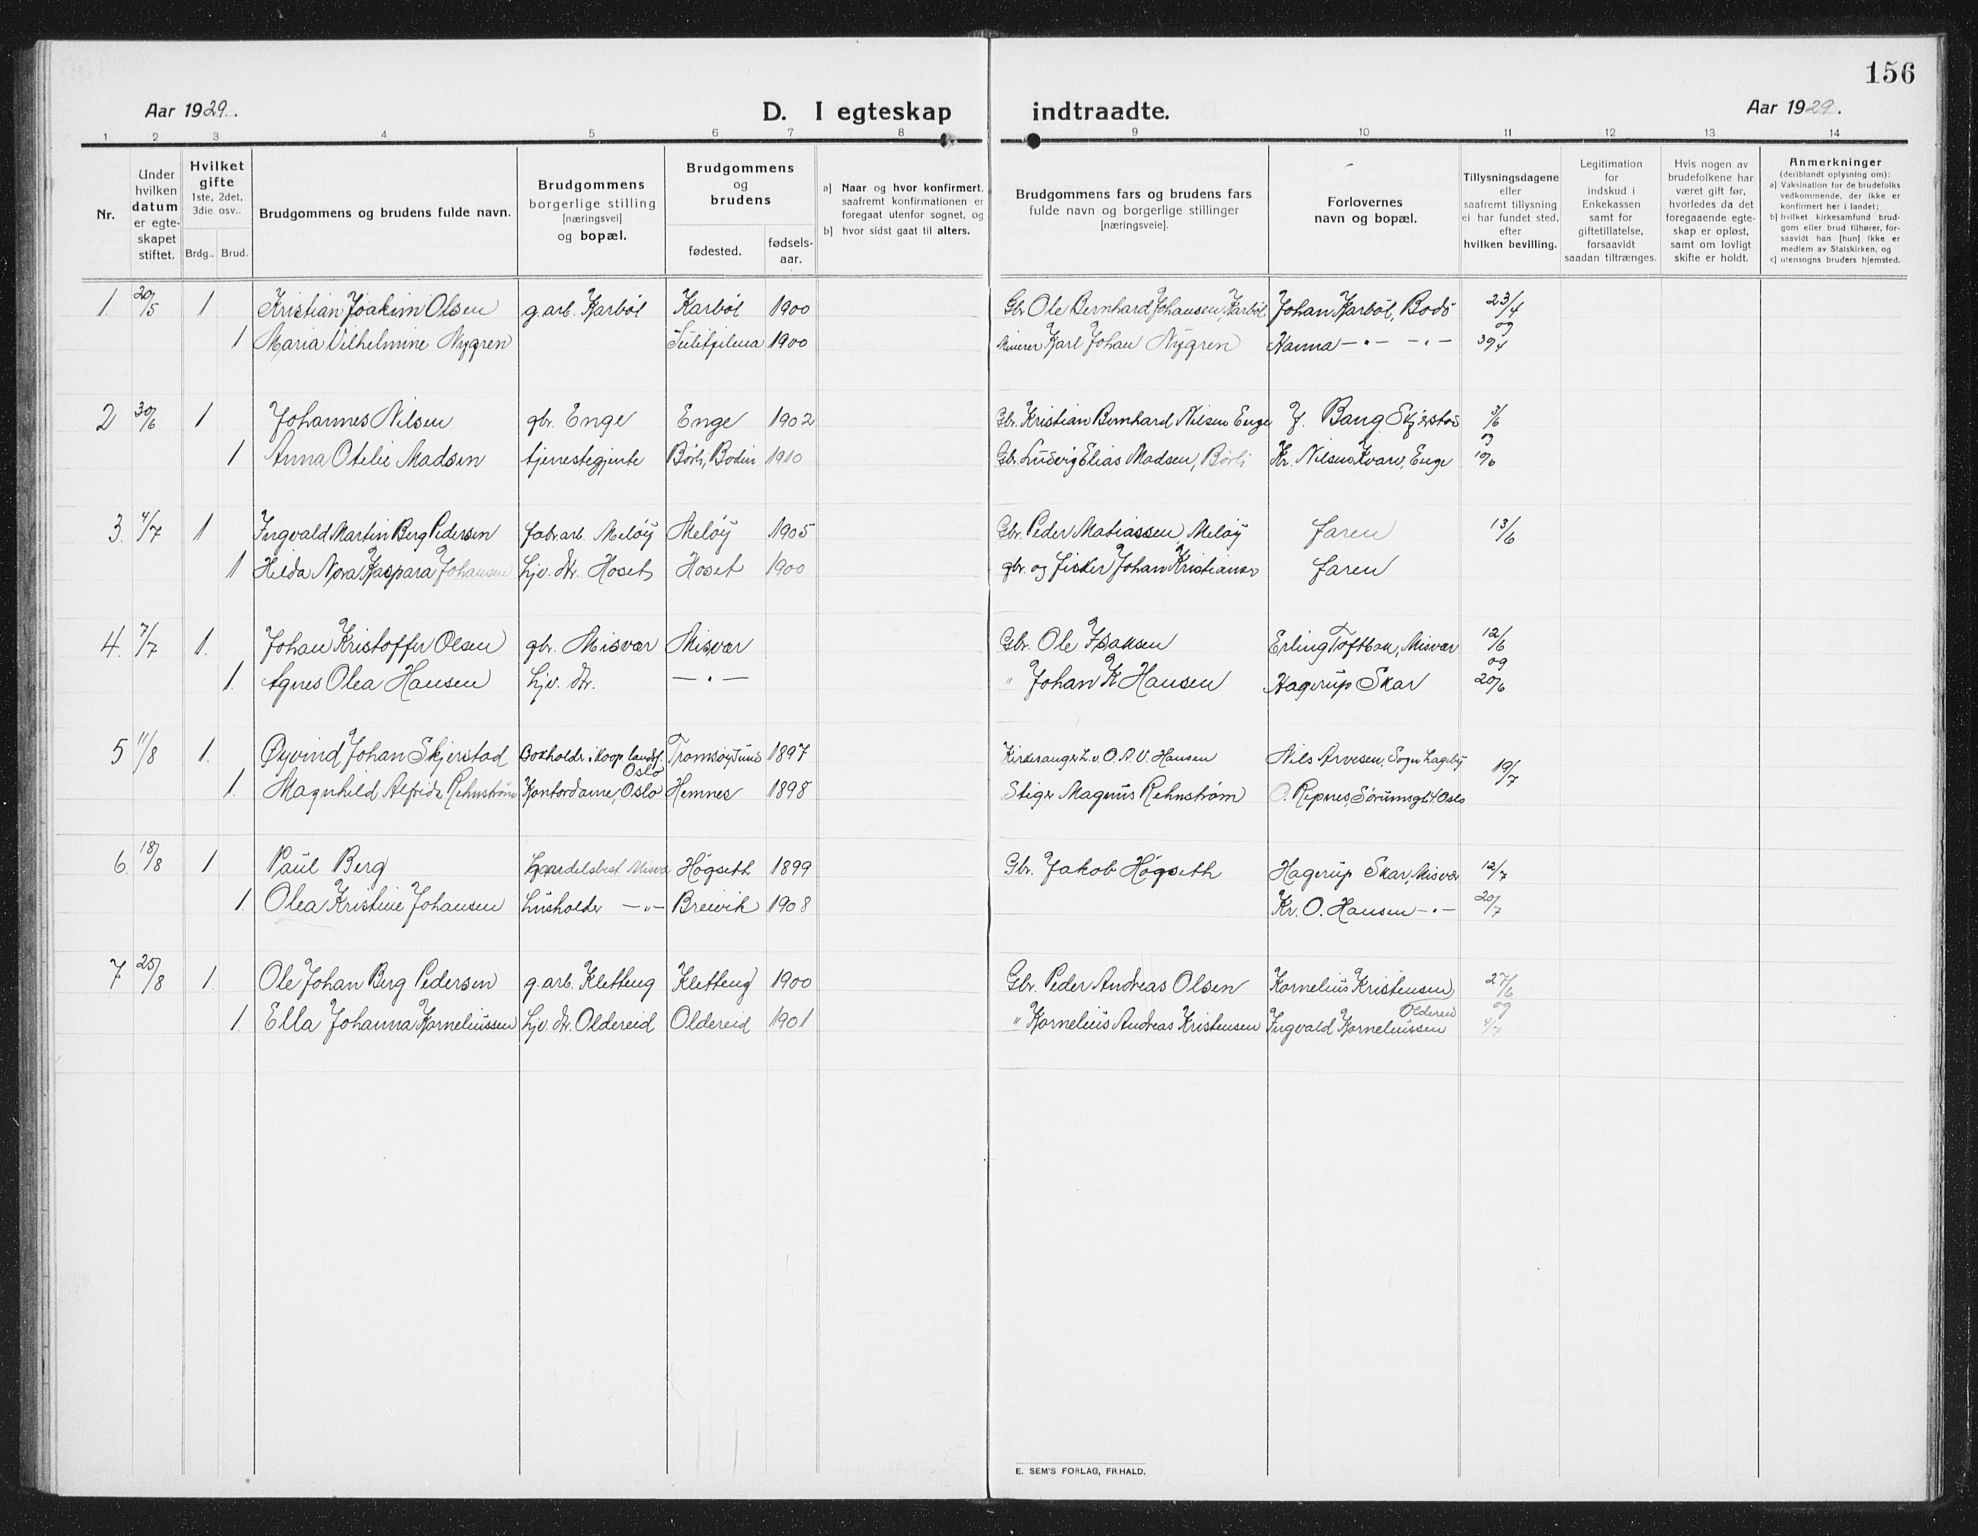 156
Aar 1929.
D. I egteskap indtraadte.
Aar 1929.
1 2 3 4 5 6 7 8 9 10 11 12 13 14
Nr.
Under hvilken datum er egte-skapet stiftet.
Hvilket gifte
1ste, 2det, 3die osv..
Brdg.. Brud.
Brudgommens og brudens fulde navn.
Brudgommens borgerlige stilling [næringsvei] og bopæl.
Brudgommens og brudens
fødested.
fødsels-aar.
a) Naar og hvor konfirmert, saafremt konfirmationen er foregaat utenfor sognet, og
b) hvor sidst gaat til alters.
Brudgommens fars og brudens fars
fulde navn og borgerlige stillinger
[næringsveie].
Forlovernes navn og bopæl.
Tillysningsdagene eller saafremt tillysning ei har fundet sted, efter hvilken bevilling.
Legitimation for indskud i Enkekassen samt for giftetillatelse, forsaavidt saadan tiltrænges.
Hvis nogen av brudefolkene har været gift før, hvorledes da det foregaaende egte-skap er opløst, samt om lovligt skifte er holdt.
Anmerkninger
(deriblandt oplysning om):
a) Vaksination for de brudefolks vedkommende, der ikke er konfirmert her i landet;
b) hvilket kirkesamfund brud-gom eller brud tilhører, for-saavidt han [hun] ikke er medlem av Statskirken, og
c) utensogns bruders hjemsted.
1. 20/5 1 Kristian Joakim Olsen g.arb. Karbøl Karbøl 1900 Gbr. Ole Bernhard Johansen, Karbøl Johan Karbøl, Bodø 23/4
og
1 Maria Vilhelmine Nygren Sulitjelma 1900 Minerer Karl Johan Nygren Hanna —"— —"— 30/4
2 30/6 1 Johannes Nilsen gbr. Enge Enge 1902 Gbr. Kristian Bernhard Nilsen Enge J. Bang Skjerstad 3/6
og
1 Anna Otelie Madsen tjenestegjente Børli, Bodin 1910 Gbr. Ludvig Elias Madsen, Børli Kr. Nilsen, Enge 10/6
3. 4/7 1 Ingvald Martin Berg Pedersen fabr.arb. Meløy Meløy 1905 Gbr. Peder Matiassen, Meløy faren 13/6
1 Hilda Nora Kaspara Johansen hjv. dtr. Hoset Hoset 1900 gbr. og fisker Johan Kristianse faren
4. 7/7 1. Johan Kristoffer Olsen gbr. Misvær Misvær Gbr. Ole Isaksen Erling Toftbak, Misvær 12/6
og
1. Agnes Olea Hansen hjv. dtr. —"— " Johan K Hansen Hagerup Skar 20/6
5 11/8 1. Øyvind Johan Skjerstad Bokholder i koop. landsf. Oslo Tromsøysund 1897 Kirkesanger L. v. O. A. U. Hansen Nils Arvesen, Sogn Hageby 19/7
1. Magnhild Alfrida Rehnstrøm Kontordame, Oslo Hemnes 1898 Stiger Magnus Rehnstrøm O. Ripnes, Sørumsgt. 4. Oslo
6. 18/8 1 Paul Berg Handelsbest. Misvær Høgseth 1899 Gbr. Jakob Høgseth Hagerup Skar, Misvær 12/7
1. Olea Kristine Johansen husholder —"— Breivik 1908 Kr. O. Hansen —"— 20/7
7 25/8 1. Ole Johan Berg Pedersen g.arb. Kletteng Kletteng 1900 Gbr. Peder Andreas Olsen Kornelius Kristensen Oldereid 27/6
og
1. Ella Johanna Korneliussen hjv. dtr. Oldereid Oldereid 1901 " Kornelius Andreas Kristensen Ingvald Korneliussen 4/7
E. SEM'S FORLAG, FR.HALD.